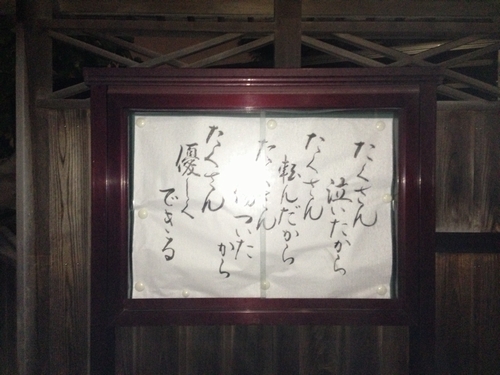 たくさん
泣いたから
たくさん
転んだから
たくさん
傷ついたから
たくさん
優しく
できる